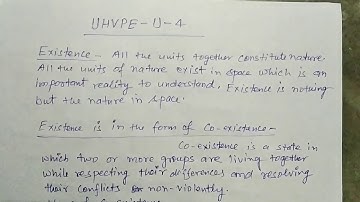 UHVPE-U-4
Existence - All the units together constitute nature.
All the units of nature exist in space which is an
important reality to understand, Existence is nothing
but the nature in space.
Existence is in the form of Co-existance -
Co-existence is a state in
which two or more groups are living together
while respecting their differences and resolving
their conflicts non-violently.